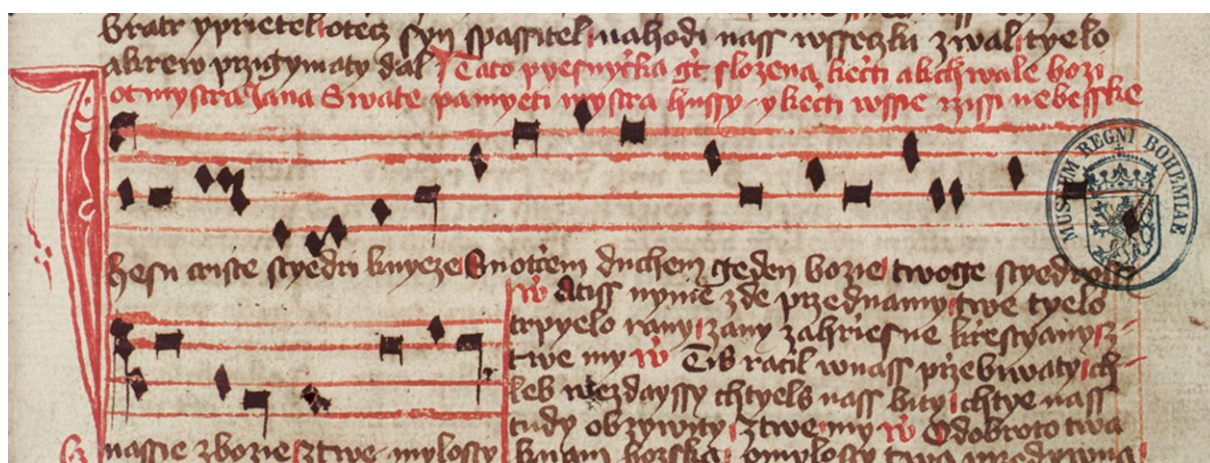 bratr yprietel otecz syn spassitel nahodi nass wsseczku zwal tyelo
akrew przigymaty dal Tato pyesnyčka gt slozena kečti akchwale bozi
ot mystra Jana Swate pamyeti mystra hussy y kečti wssie rzissi nebesske
MUSEUM REGNI BOHEMIAE
hesu criste sčyedri knyeze Sotčem duchem geden bozie twoge sčyedrost
nassie zbozie z twe mylosty
W Atiss nyme zde przednamy twe tyelo
trpyelo rany zany zahriesne krestyany z
twe my W Tis račil wnass přebiwaty ch
leb wezdayssy chtyels nass byti chtye nass
tudy obzywity z twe my W O dobroto twa